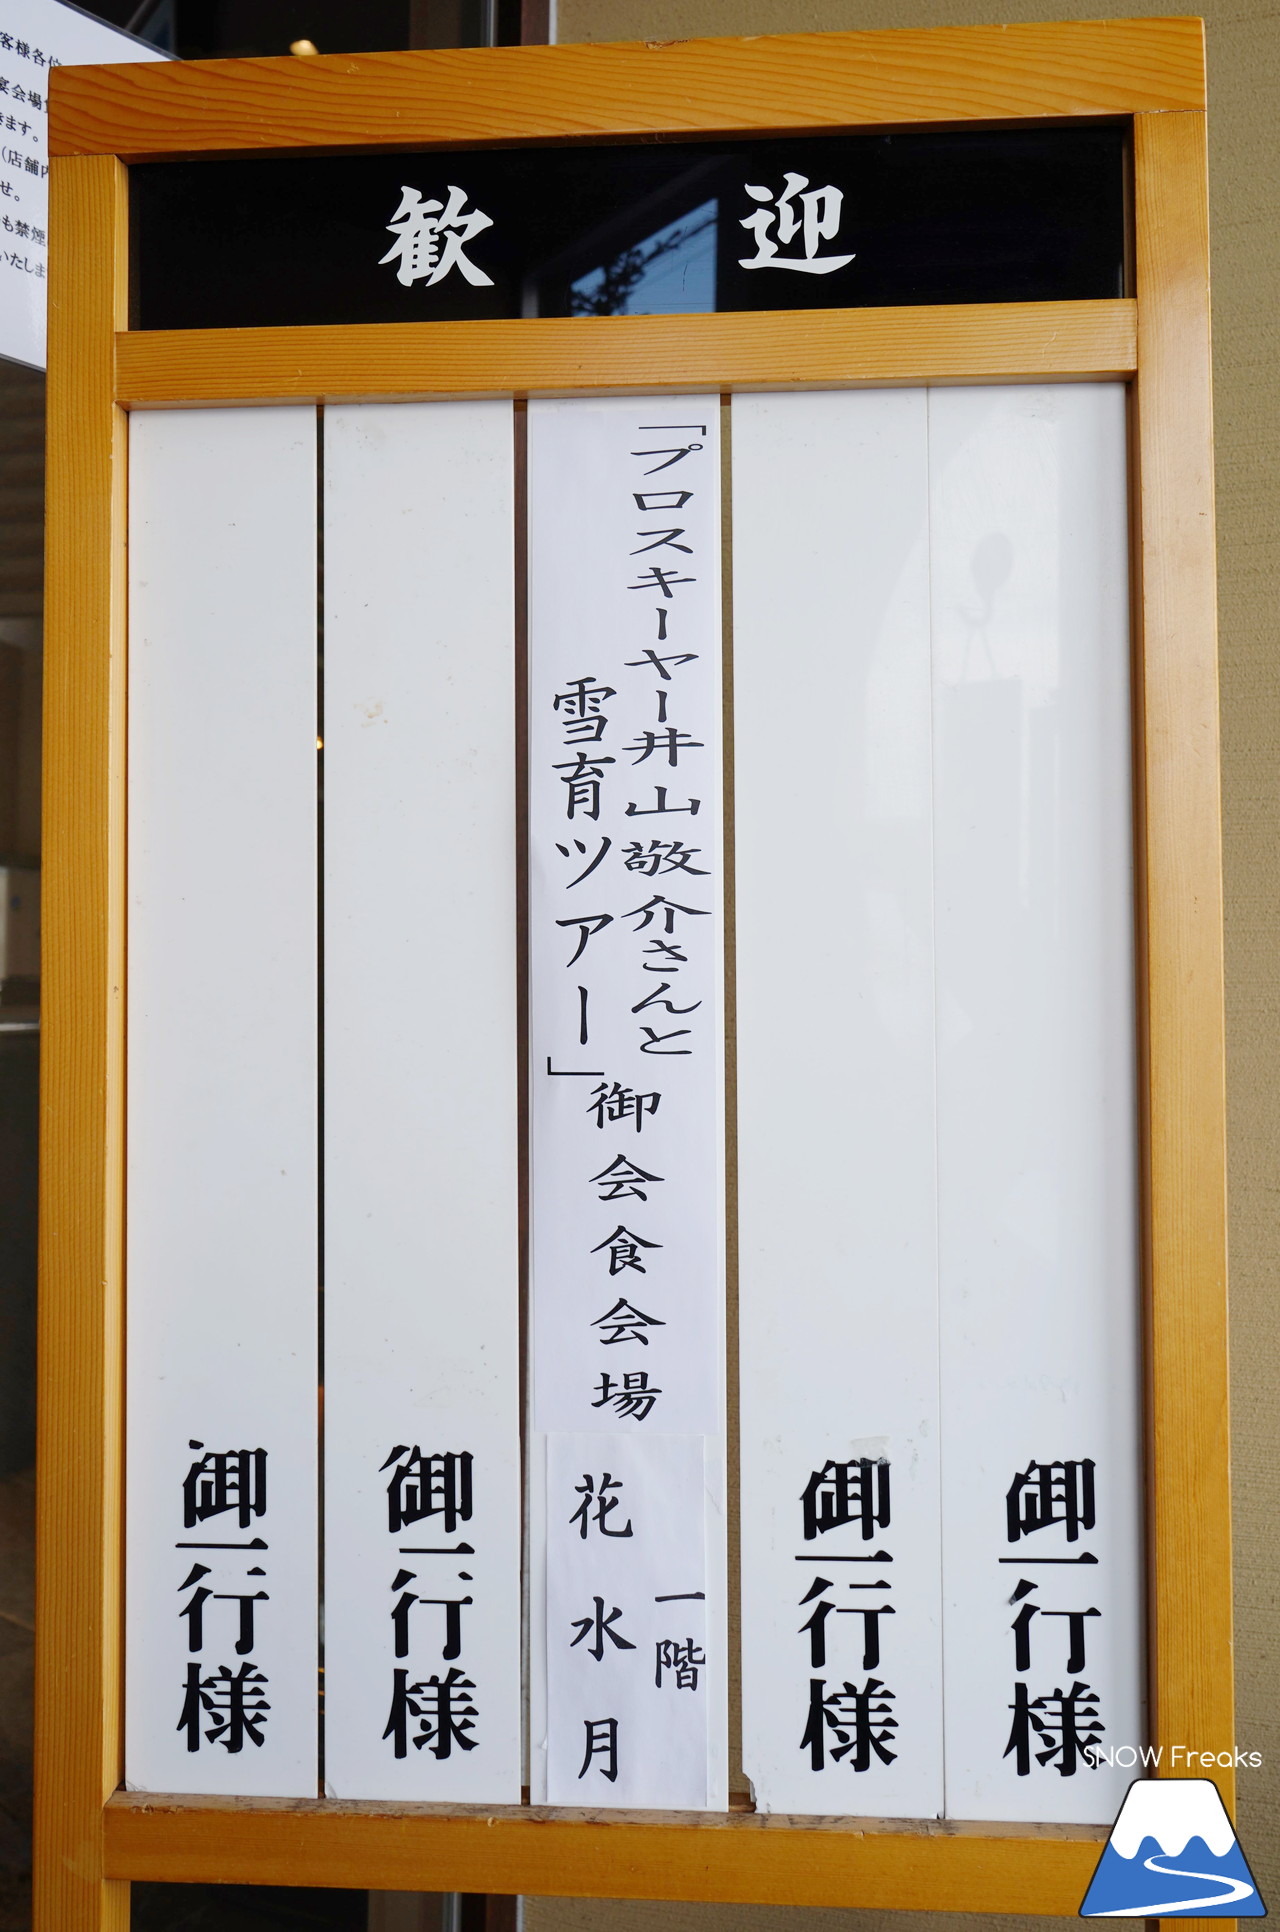 歓迎
御一行様
御一行様
「プロスキーヤー井山敬介さんと
雪育ツアー」
御会食会場
一階
花水月
御一行様
御一行様
客様各位
宴会場
きます。
(店舗内
せ。
も禁煙
いたしま
SNOW Freaks